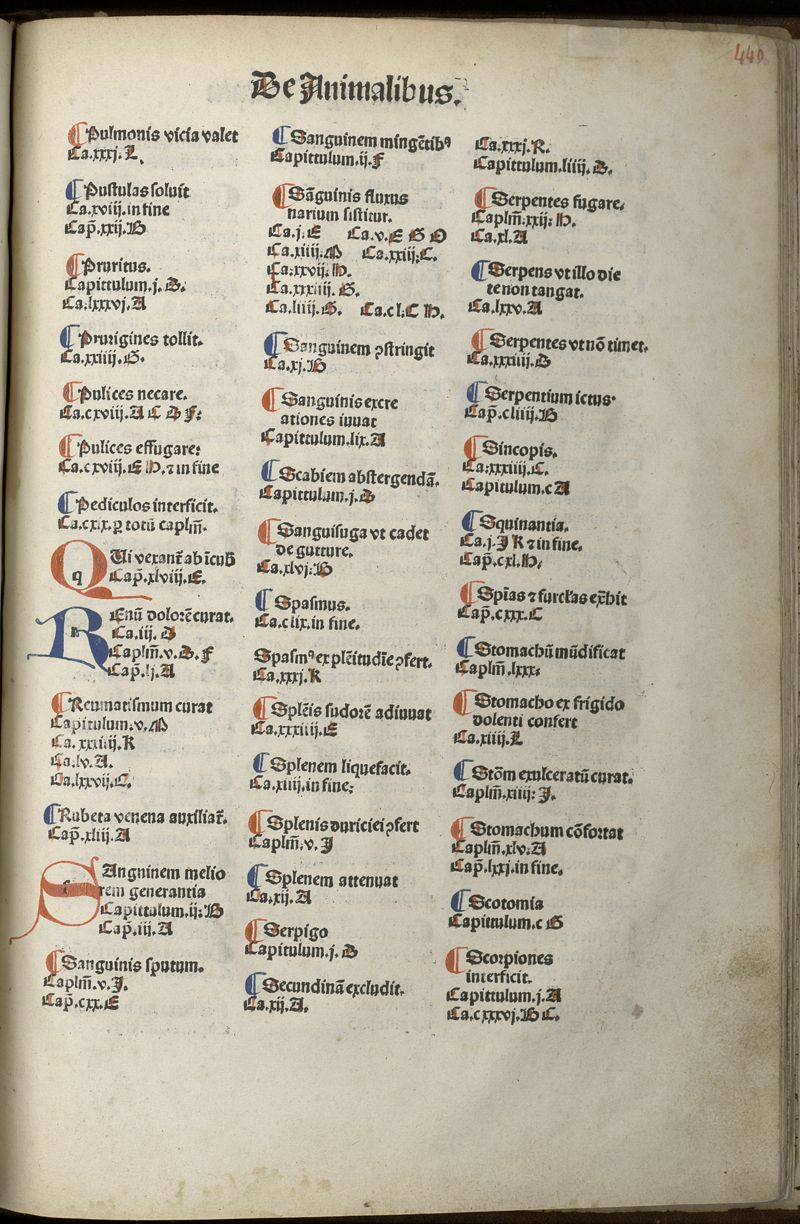 440
De Animalibus.
¶Pulmonis vicia valet
Ca.xxxj.L.
¶Pustulas soluit
Ca.xviij.in fine
Cap̄.xxij.B
¶Pruritus.
Capittulum.j.D.
Ca.lxxxvj.A
¶Prurigines tollit.
Ca.xxiiij.G.
¶Pulices necare.
Ca.cxviij.A C D F.
¶Pulices effugare:
Ca.cxviij.E H.⁊ in fine
¶Pediculos interficit.
Ca.cxix.ꝑ totū caplm̄.
QUi vexant᷑ ab īcub
q Cap̄.xlviij.E.
REnū dolorē curat.
Ca.iij. D
Caplm̄.v.D.F
Cap̄.lj.A
¶Reumatismum curat
Capitulum.v.M
Ca.xxiiij.K
Ca.lv.A.
Ca.lxxvij.C.
¶Rubeta venena auxiliat᷑.
Cap̄.xliij.A
SAngninem melio
rem generantia
Capittulum.ij:B
Cap̄.iij.A
¶Sanguinis sputum.
Caplm̄.v.J.
Cap̄.cxx.E
¶Sanguinem mingētibꝰ
Capittulum.ij.F
¶Sāguinis fluxus
narium sistitur.
Ca.j.E Ca.v.E G O
Ca.xiiij.M Ca.xxiij.C.
Ca.xxvij.H.
Ca.xxxiiij.G.
Ca.liiij.G. Ca.cl.C H.
¶Sanguinem ꝯstringit
Ca.xj.B
¶Sanguinis excre
ationes iuuat
Capittulum.lix.A
¶Scabiem abstergendā.
Capittulum.j.D
¶Sanguisuga vt cadet
de gutture.
Ca.xlvj:B
¶Spasmus.
Ca.clix.in fine.
Spasmꝰ ex plēitudīe ꝯfert.
Ca.xxxj.K
¶Splēis sudorē adiuuat
Ca.xxxiiij.E
¶Splenem liquefacit.
Ca.xiiij.in fine:
¶Splenis duriciei ꝯfert
Caplm̄.v.J
¶Splenem attenuat
Ca.xij.A
¶Serpigo
Capitulum.j.D
¶Secundinā excludit.
Ca.xij.A.
Ca.xxxj.K.
Capittulum.liiij.D.
¶Serpentes fugare.
Caplm̄.xxij:H.
Ca.xl.A
¶Serpens vt illo die
te non tangat.
Ca.lxxv.A
¶Serpentes vt nō timet.
Ca.xxxiiij.D
¶Serpentium ictus.
Cap̄.cliiij.B
¶Sincopis.
Ca.xxxiiij.C.
Capitulum.c A
¶Squinantia.
Ca.j.J K ⁊ in fine.
Cap̄.cxl.H.
¶Spīas ⁊ furcl'as ex̄bit
Cap̄.cxxx.C
¶Stomachū mūdificat
Caplm̄.lxxx.
¶Stomacho ex frigido
dolenti confert
Ca.xiiij.L
¶Stōm exulceratū curat.
Caplm̄.xiiij:J.
¶Stomachum cōfortat
Caplm̄.xlv.A
Cap̄.lxxj.in fine.
¶Scotomia
Capittulum.c G
¶Scorpiones
interficit.
Capittulum.j.A
Ca.cxxxvj.B C.